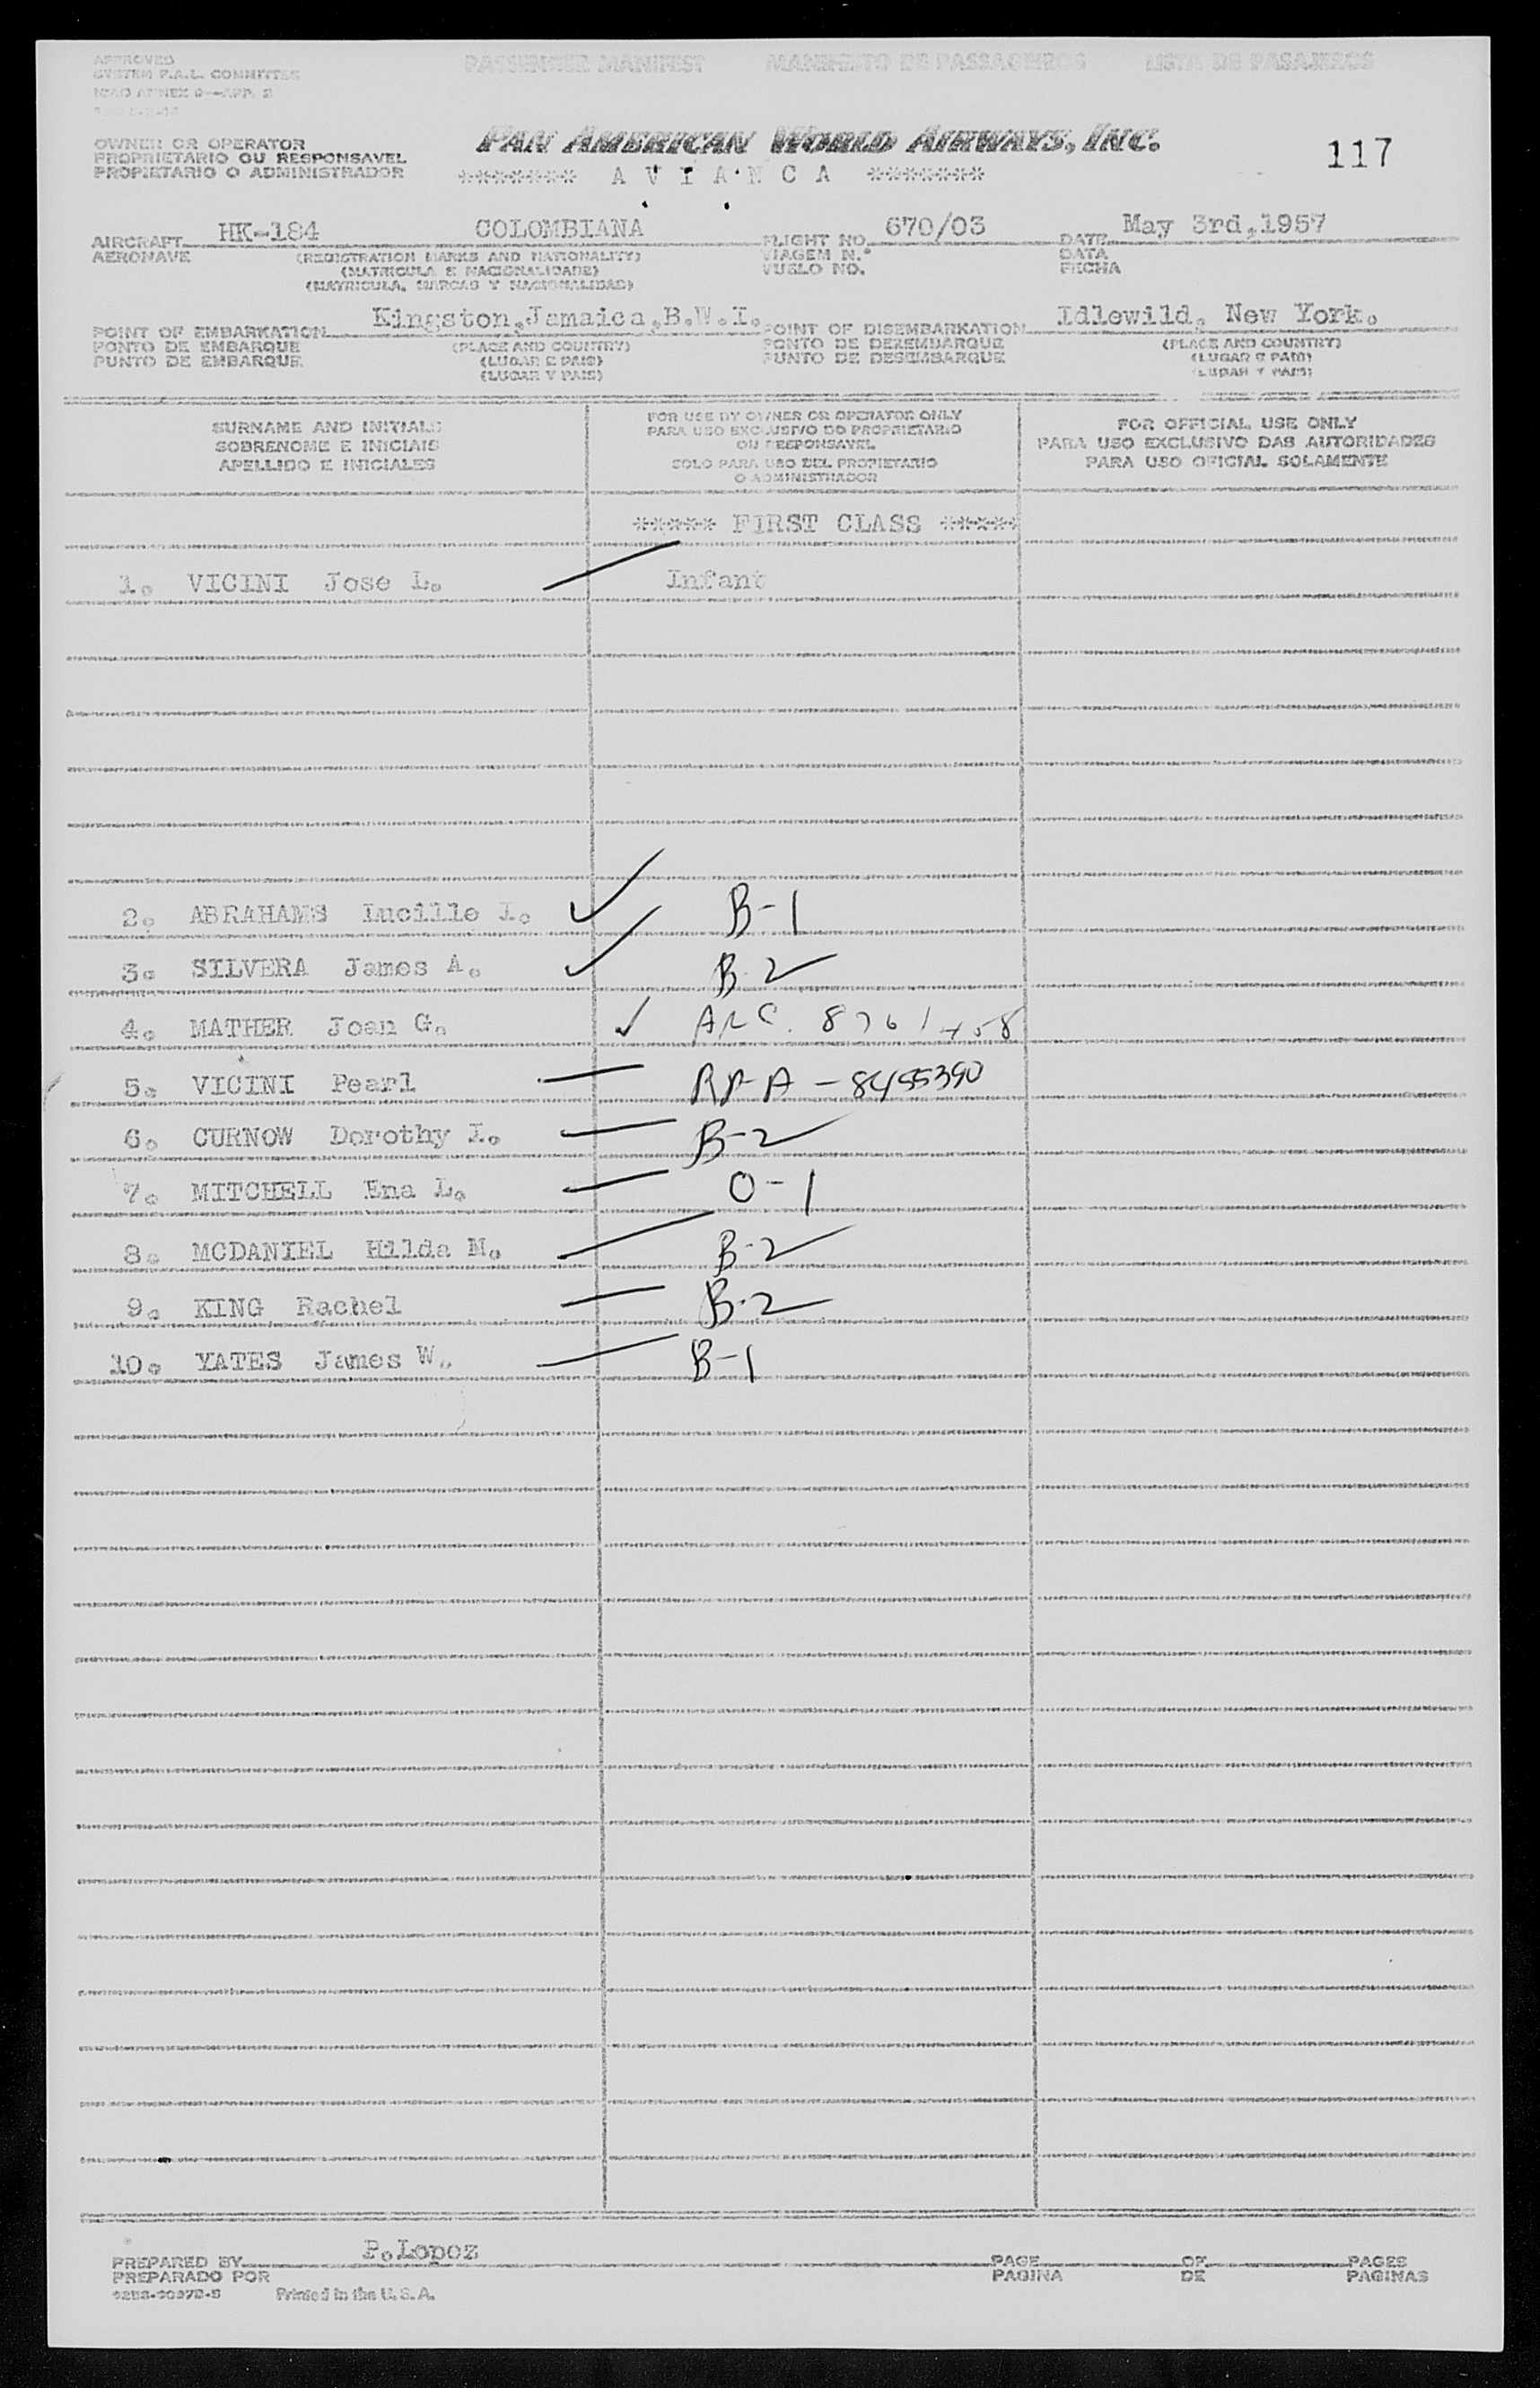 APPROVED
SYSTEM F.A.L. COMMITTEE
ICAO ANNEX 9—APP. 2
PASSENGER MANIFEST MANIFESTO DE PASSAGEIROS LISTA DE PASAJEROS
OWNER OR OPERATOR
PROPRIETARIO OU RESPONSAVEL
PROPIETARIO O ADMINISTRADOR
PAN AMERICAN WORLD AIRWAYS, INC.
******* A V I A N C A *******
117
AIRCRAFT HK-184 COLOMBIANA FLIGHT NO. 670/03 DATE May 3rd,1957
AERONAVE (REGISTRATION MARKS AND NATIONALITY) VIAGEM N.º DATA
(MATRICULA E NACIONALIDADE) VUELO NO. FECHA
(MATRICULA, MARCAS Y NACIONALIDAD)
POINT OF EMBARKATION Kingston,Jamaica,B.W.I. POINT OF DISEMBARKATION Idlewild, New York.
PONTO DE EMBARQUE (PLACE AND COUNTRY) PONTO DE DEZEMBARQUE (PLACE AND COUNTRY)
PUNTO DE EMBARQUE (LUGAR E PAIS) PUNTO DE DESEMBARQUE (LUGAR E PAIS)
(LUGAR Y PAIS) (LUGAR Y PAIS)
SURNAME AND INITIALS
SOBRENOME E INICIAIS
APELLIDO E INICIALES
FOR USE BY OWNER OR OPERATOR ONLY
PARA USO EXCLUSIVO DO PROPRIETARIO
OU RESPONSAVEL
SOLO PARA USO DEL PROPIETARIO
O ADMINISTRADOR
FOR OFFICIAL USE ONLY
PARA USO EXCLUSIVO DAS AUTORIDADES
PARA USO OFICIAL SOLAMENTE
***** FIRST CLASS *****
1. VICINI Jose L. Infant
2. ABRAHAMS Lucille I. B-1
3. SILVERA James A. B-2
4. MATHER Joan G. ARC. 8761458
5. VICINI Pearl RPA-8455390
6. CURNOW Dorothy I. B-2
7. MITCHELL Ena L. O-1
8. MCDANIEL Hilda M. B-2
9. KING Rachel B-2
10. YATES James W. B-1
PREPARED BY P.Lopez PAGE OF PAGES
PREPARADO POR PAGINA DE PAGINAS
Printed in the U.S.A.